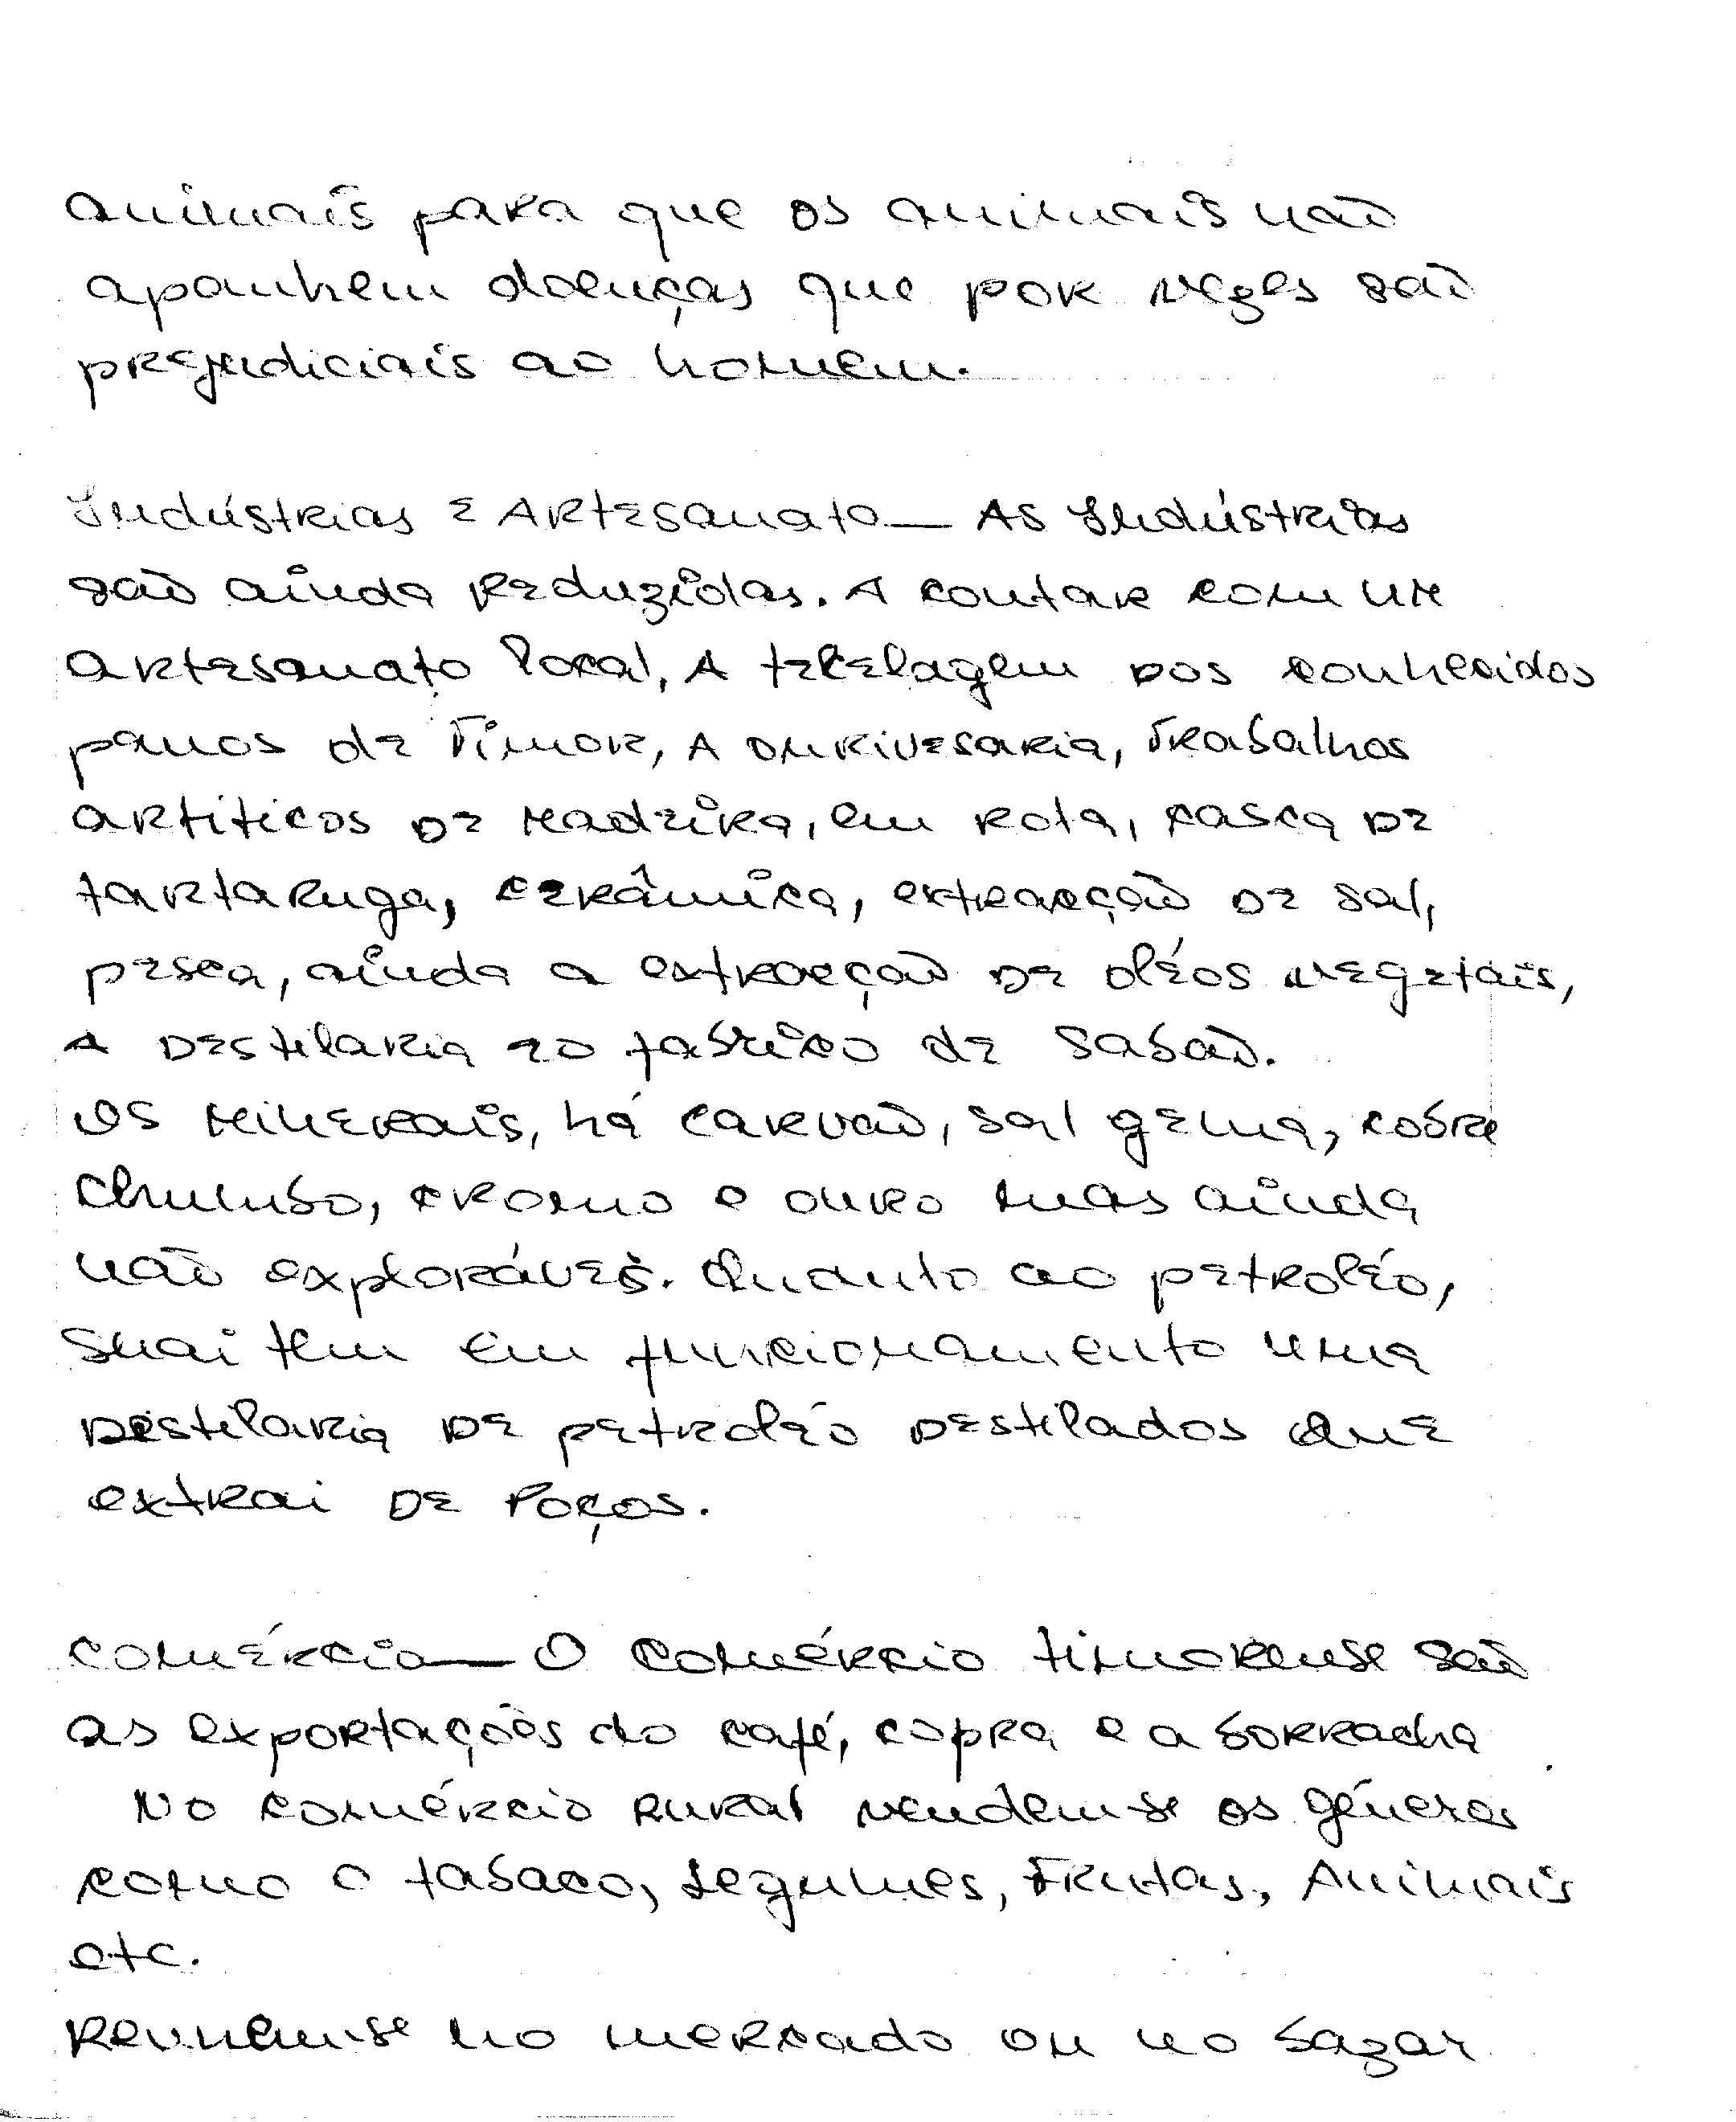 animais para que os animais não
apanhem doenças que por vezes são
prejudiciais ao homem.
Indústrias e Artesanato — As Indústrias
são ainda reduzidas. A contar com um
artesanato local, A tecelagem dos conhecidos
panos de Timor, A ourivesaria, Trabalhos
artíticos de madeira, em rota, casca de
tartaruga, cerâmica, extracção de sal,
pesca, ainda a extracção de oléos vegetais,
A Destilaria eo fabrico de sabão.
Os minerais, há carvão, sal gema, cobre
chumbo, cromo e ouro mas ainda
não exploráves. Quanto ao petroléo,
Suai tem em funcionamento uma
Destilaria de petroléo Destilados que
extrai de Poços.
Comércio — O Comércio timorense são
as exportações do café, copra e a borracha
No comércio rural vendem-se os géneros
como o tabaco, Legumes, Frutas, Animais
etc.
Reunem-se no mercado ou no bazar